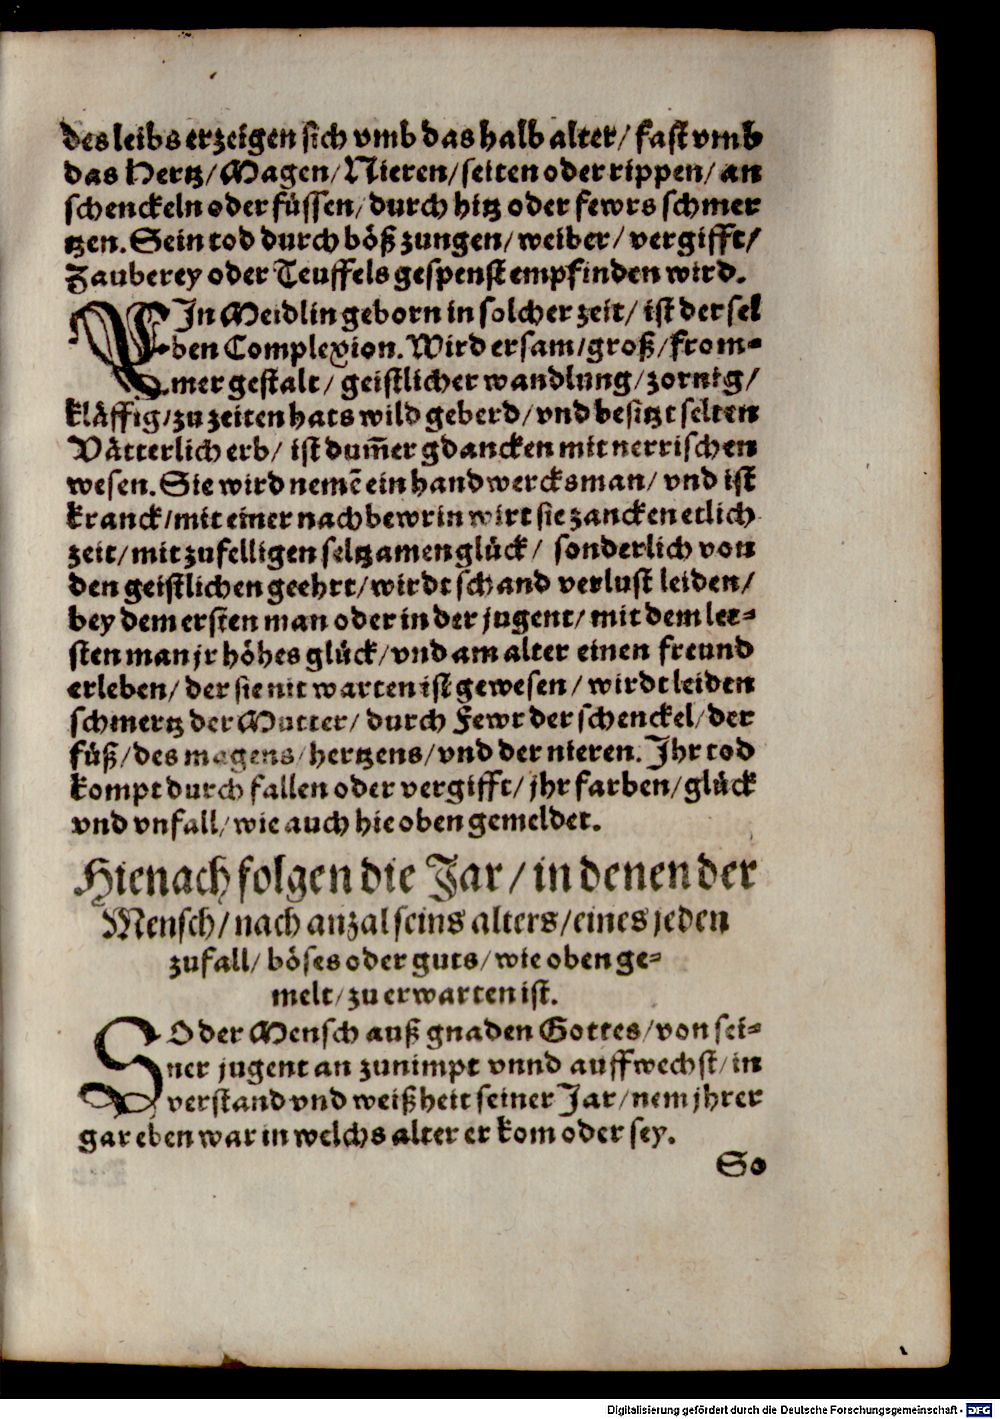 des leibs erzeigen sich vmb das halb alter/ fast vmb
das Hertz/ Magen/ Nieren/ seiten oder rippen/ an
schenckeln oder füssen/ durch hitz oder fewrs schmer
tzen. Sein tod durch böß zungen/ weiber/ vergifft/
Zauberey oder Teuffels gespenst empfinden wird.
EIn Meidlin geborn in solcher zeit/ ist der sel
ben Complexion. Wird ersam/ groß/ from-
mer gestalt/ geistlicher wandlung/ zornig/
kläffig/ zu zeiten hats wild geberd/ vnd besitzt selten
Vätterlich erb/ ist dum̃er gdancken mit nerrischen
wesen. Sie wird nemẽ ein handwercksman/ vnd ist
kranck/ mit einer nachbewrin wirt sie zancken etlich
zeit/ mit zufelligen seltzamen glück/ sonderlich von
den geistlichen geehrt/ wirdt schand verlust leiden/
bey dem ersten man oder in der jugent/ mit dem let-
sten man jr höhes glück/ vnd am alter einen freund
erleben/ der sie nit warten ist gewesen/ wirdt leiden
schmertz der Mutter/ durch Fewr der schenckel/ der
füß/ des magens/ hertzens/ vnd der nieren. Ihr tod
kompt durch fallen oder vergifft/ jhr farben/ glück
vnd vnfall/ wie auch hie oben gemeldet.
Hienach folgen die Jar/ in denen der
Mensch/ nach anzal seins alters/ eines jeden
zufall/ böses oder guts/ wie oben ge-
melt/ zu erwarten ist.
SO der Mensch auß gnaden Gottes/ von sei-
ner jugent an zunimpt vnnd auffwechst/ in
verstand vnd weißheit seiner Jar/ nem jhrer
gar eben war in welchs alter er kom oder sey.
So
Digitalisierung gefördert durch die Deutsche Forschungsgemeinschaft - DFG